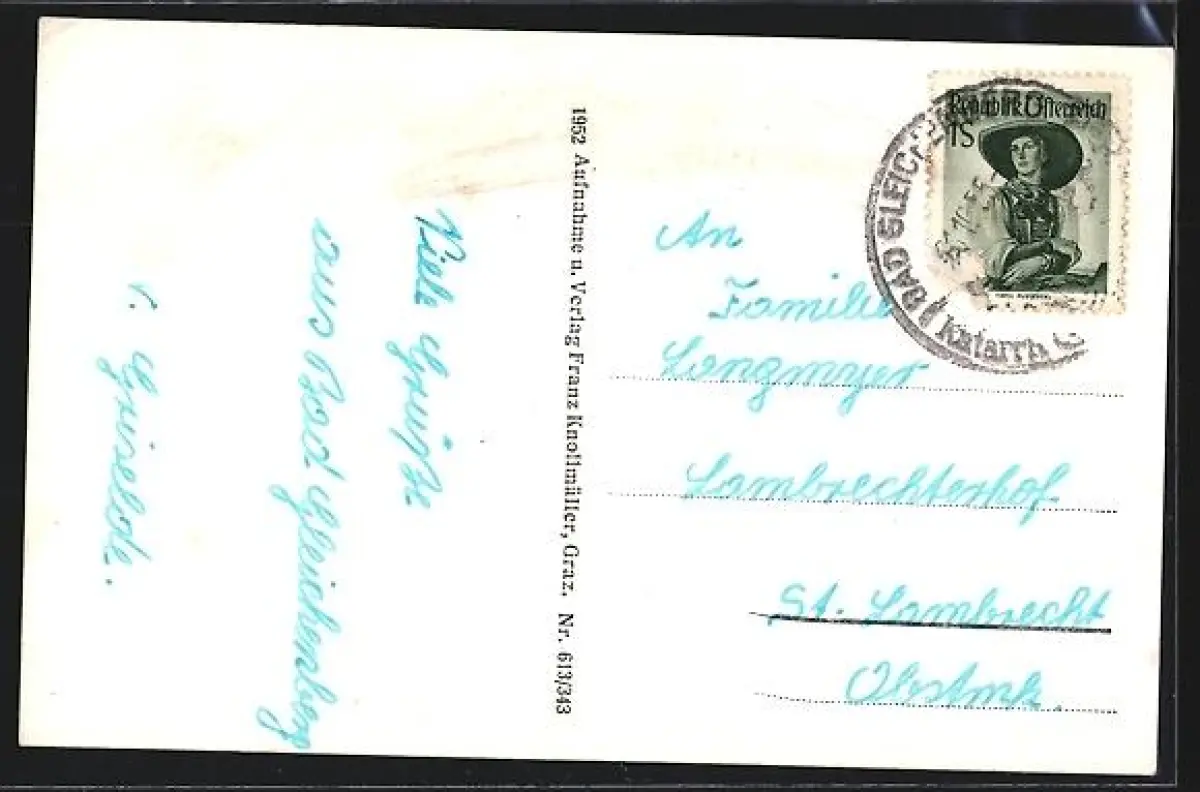 Viele Grüße
aus Bad Gleichenberg
v. Griselde.
1952 Aufnahme u. Verlag Franz Knollmüller, Graz. Nr. 613/343
Republik Österreich
1S
BAD GLEICHENBERG
Katarrh
An
Familie
Langmayer
Lambrechterhof.
St. Lambrecht
Obstmk.